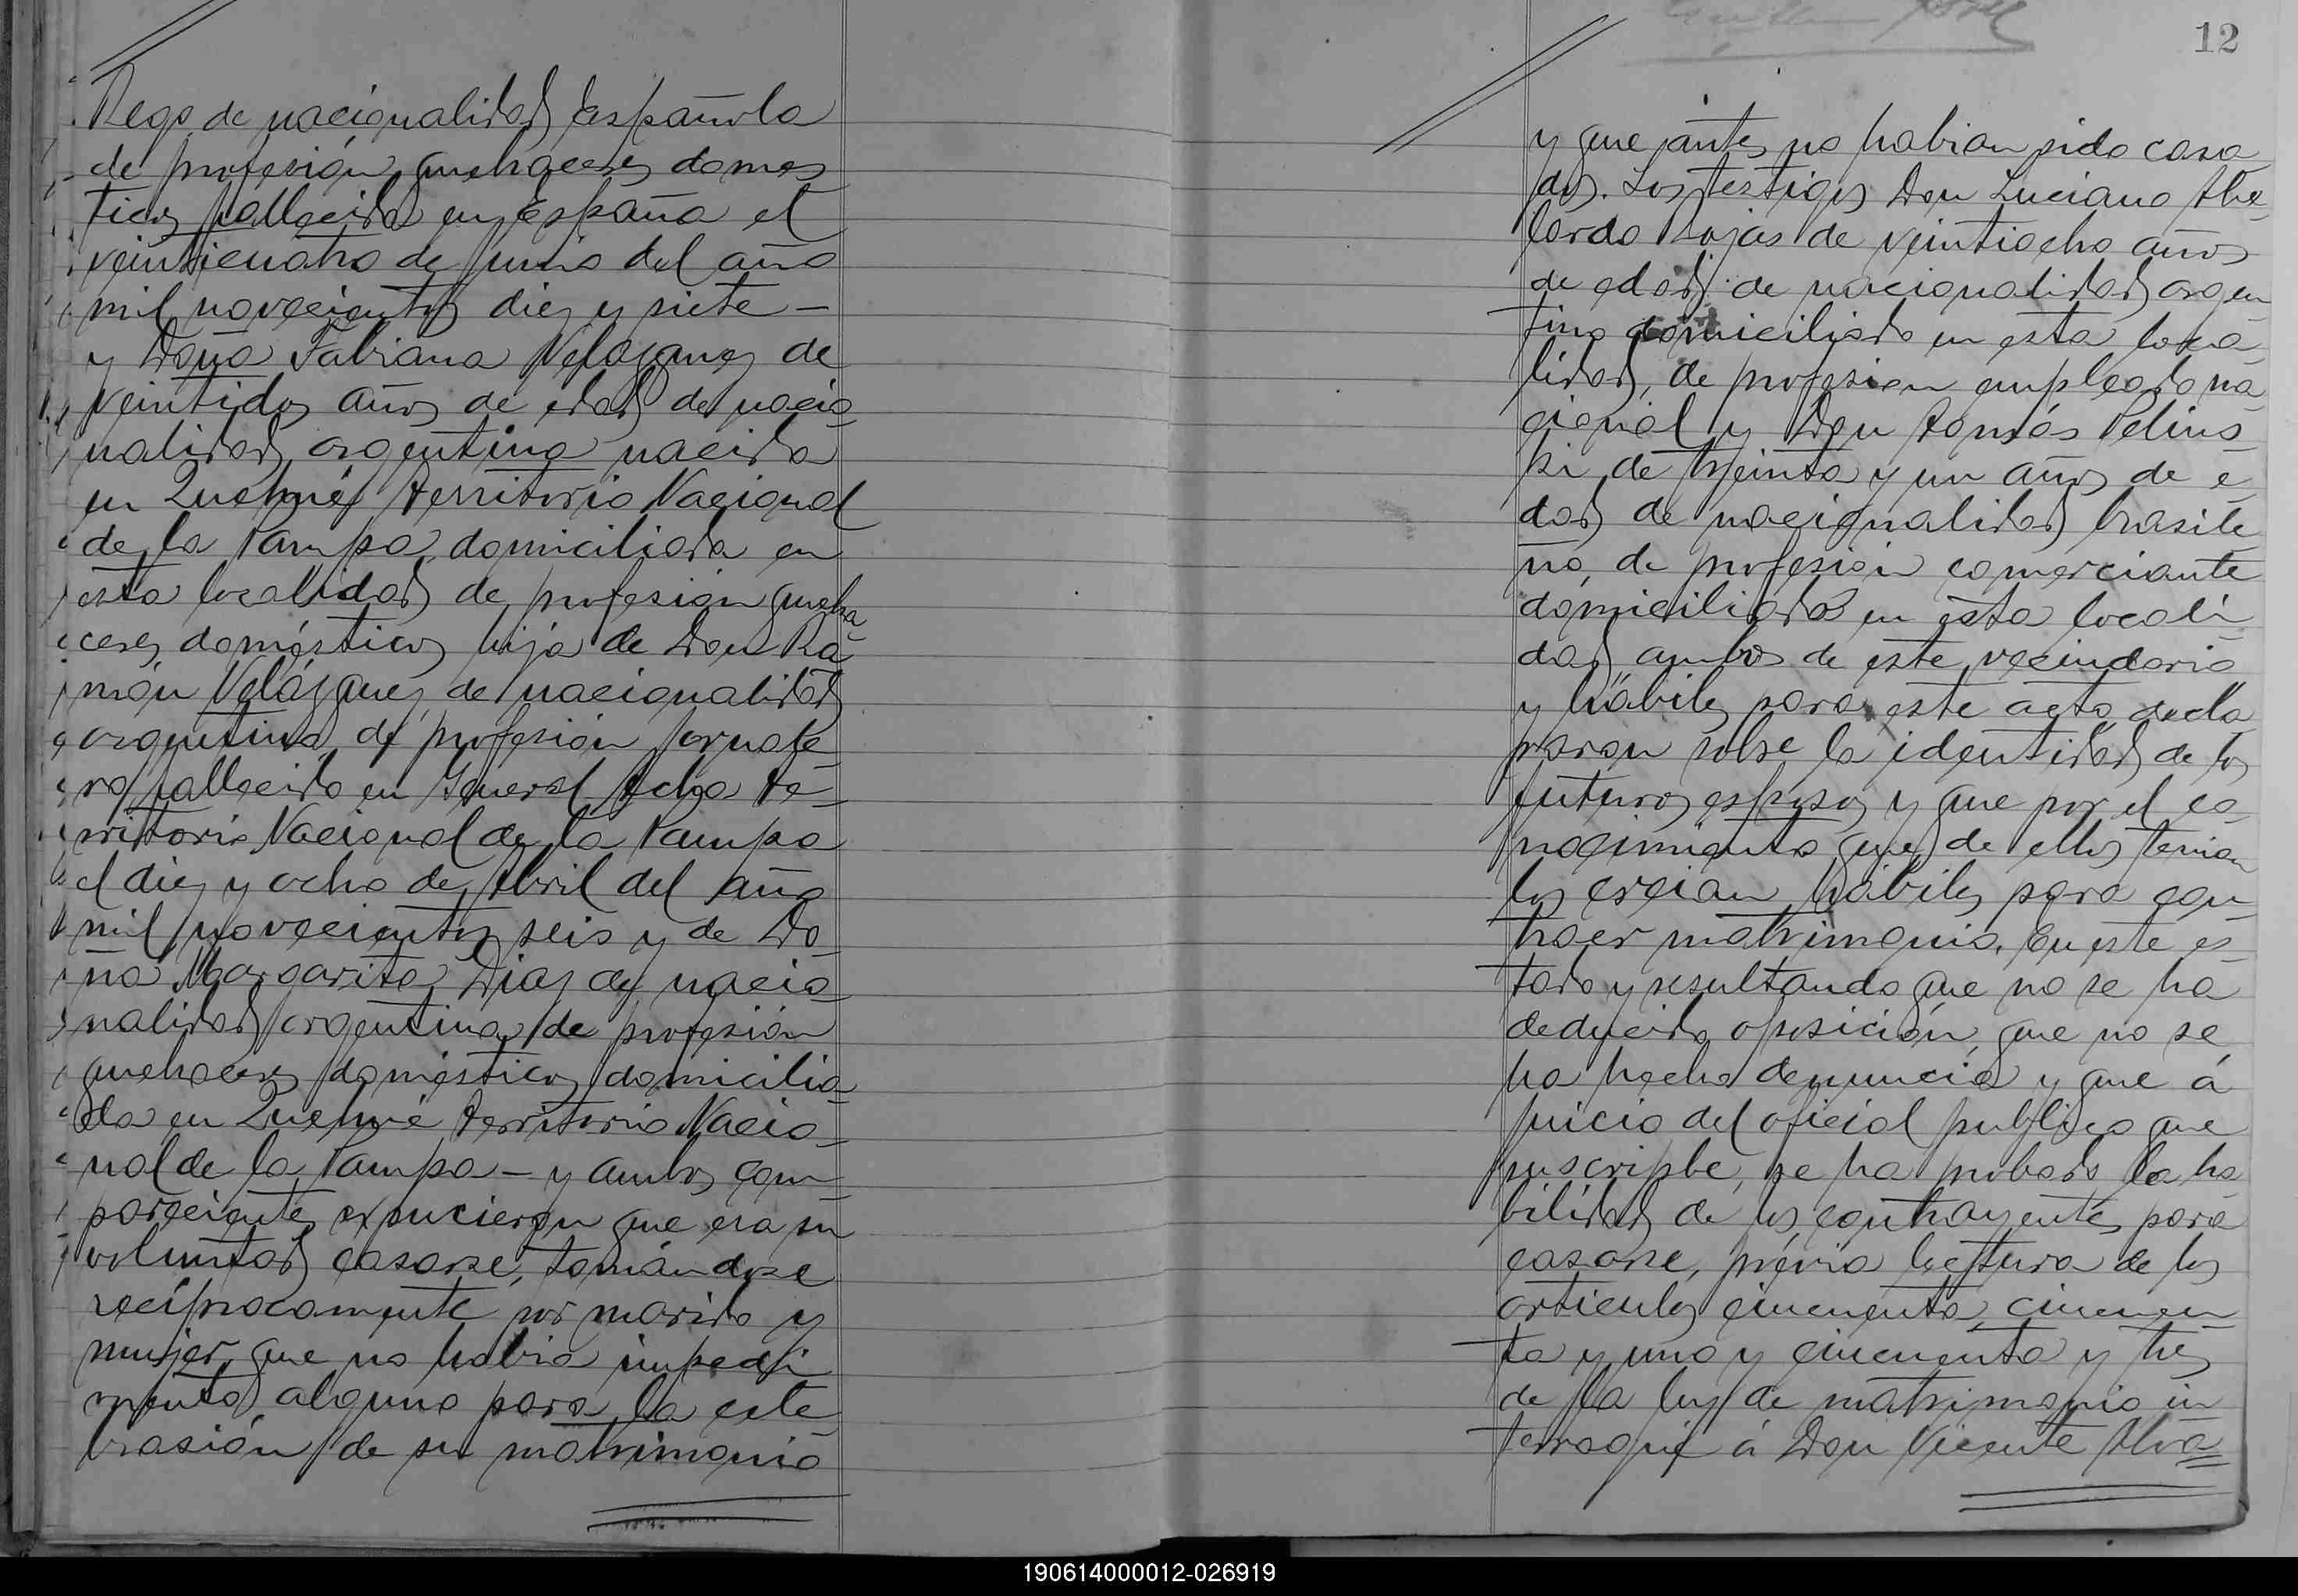 Rego de nacionalidad Española
de profesión quehaceres domes
ticos fallecida en España el
veinticuatro de junio del año
mil novecientos diez y siete —
y Doña Fabiana Velazquez de
veintidos años de edad de nacio
nalidad argentina nacida
en Quehué territorio Nacional
de la Pampa, domiciliada en
esta localidad de profesión queha
ceres domésticos hija de Don Ra
món Velázquez, de nacionalidad
argentina de profesión jornale
ro fallecido en General Acha te-
rritorio Nacional de la Pampa
el diez y ocho de Abril del año
mil novecientos seis y de Do
ña Margarita Diaz de nacio
nalidad argentina, de profesión
quehaceres domésticos domicilia
da en Quehué territorio Nacio
nal de la Pampa — y ambos com
parecientes expucieron que era su
voluntad casarse, tomándose
recíprocamente por marido y
mujer, que no habia impedi
mento alguno para la cele
brasión de su matrimonio
12
y que antes no habian sido casa
dos. Los testigos Don Luciano Abe
lardo Rojas de veintiocho años
de edad de nacionalidad argen
tino domiciliado en esta loca
lidad, de profesion empleado na
cional y Don Tomás Pelins
ki de treinta y un años de e
dad de nacionalidad brasile
ño, de profesión comerciante
domiciliado en esta locali
dad ambos de este vecindario
y hábiles para este acto, decla
raron sobre la identidad de los
futuros esposos y que por el co
nocimiento que de ellos tenian
los creian hábiles para con
traer matrimonio. En este es
tado y resultando que no se ha
deducido oposición, que no se
ha hecho denuncia y que á
juicio del oficial publico que
suscribe, se ha probado la ha
bilidad de los contrayentes para
casarse, prévia lectura de los
articulos cincuenta, cincuen
ta y uno y cincuenta y tres
de la ley de matrimonio in
terrogué á Don Vicente Alva
190614000012-026919